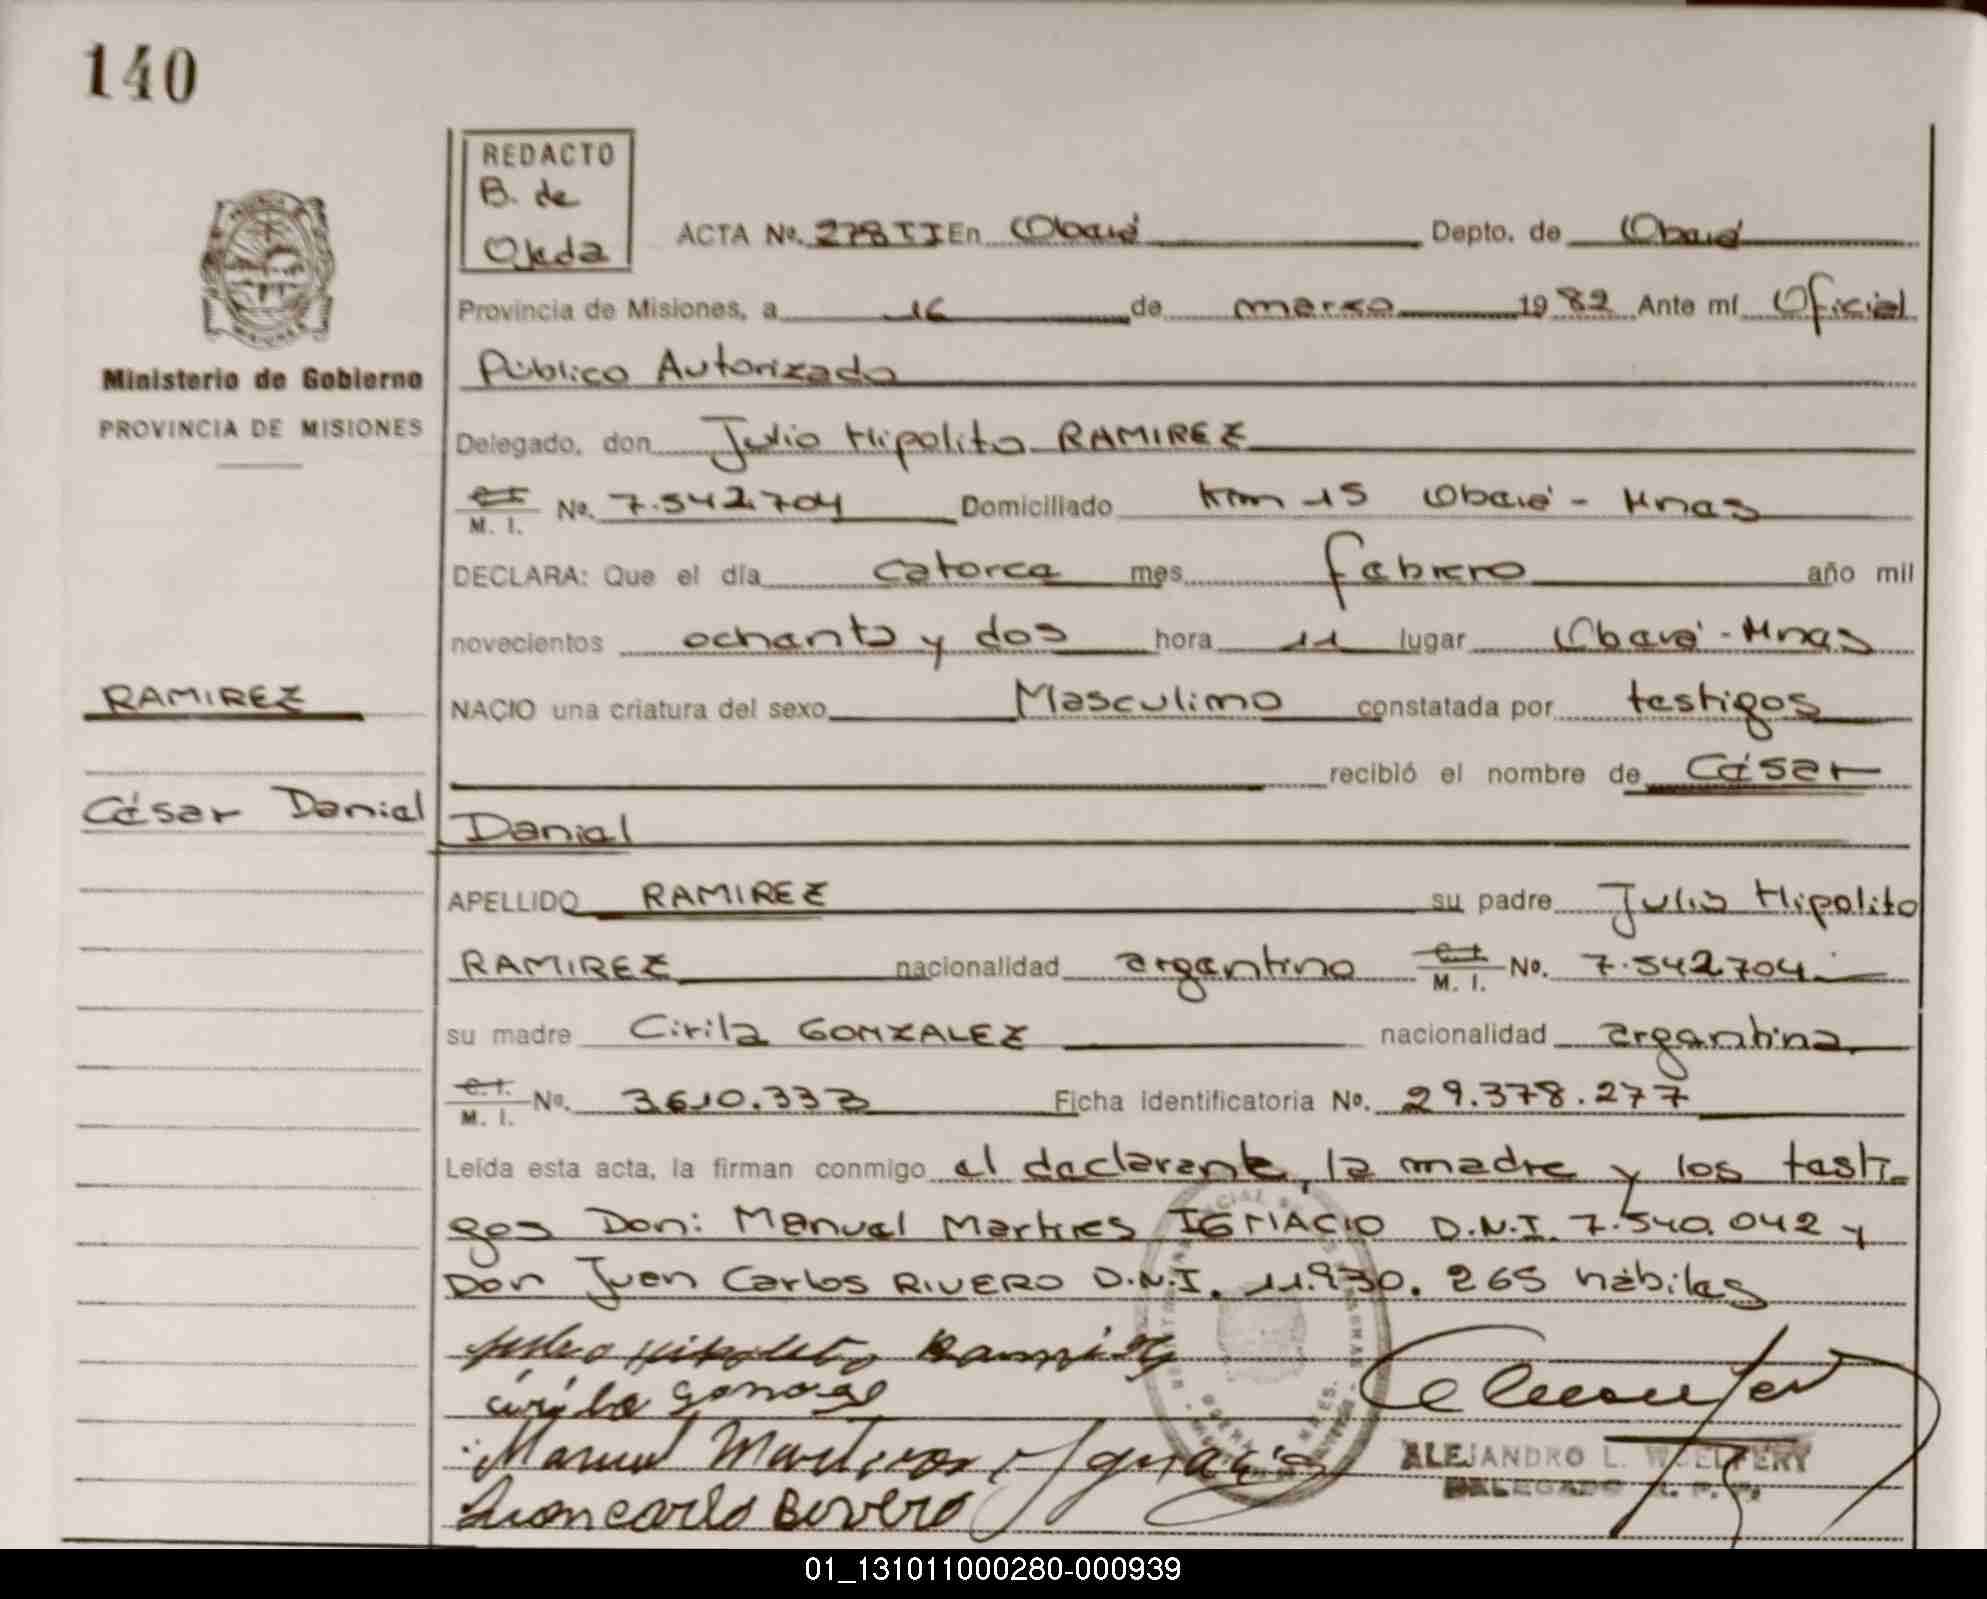 140
REDACTO
B. de
Ojeda
ACTA No. 278 II En Oberá Depto. de Oberá
Provincia de Misiones, a 16 de marzo 1982 Ante mí Oficial
Público Autorizado
Ministerio de Gobierno
PROVINCIA DE MISIONES
Delegado, don Julio Hipolito RAMIREZ
C.I. M. I. No. 7.542.704 Domiciliado Km 15 Oberá - Mnes
DECLARA: Que el día catorce mes febrero año mil
novecientos ochenta y dos hora 11 lugar Oberá - Mnes
RAMIREZ
NACIO una criatura del sexo Masculino constatada por testigos
recibió el nombre de César
César Daniel
Daniel
APELLIDO RAMIREZ su padre Julio Hipolito
RAMIREZ nacionalidad argentino C.I. M. I. No. 7.542.704
su madre Cirila GONZALEZ nacionalidad argentina
C.I. M. I. No. 3.610.333 Ficha identificatoria No. 29.378.277
Leída esta acta, la firman conmigo el declarante, la madre y los testi-
gos Don: Manuel Martires IGNACIO D.N.I. 7.540.042 y
Don Juan Carlos RIVERO D.N.I. 11.930.265 hábiles
Julio Hipolito Ramirez
cirila Gonzale
Manuel Martires Ignacio
Juan carlo Rivero
ALEJANDRO L.
DELEGADO
01_131011000280-000939